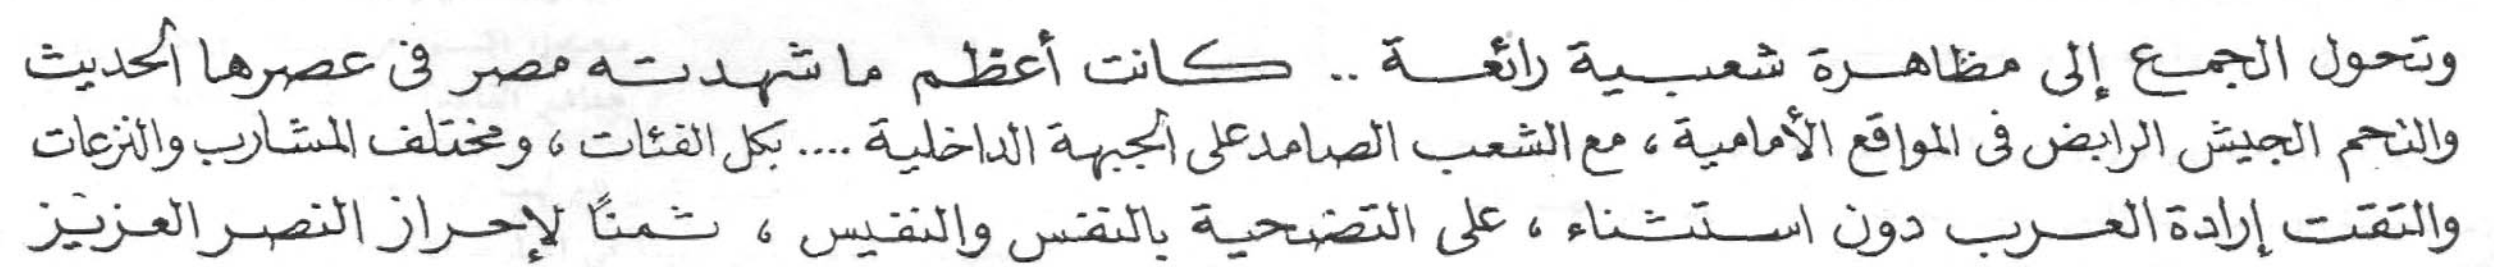 وتحول الجمع إلى مظاهرة شعبية رائعة .. كانت أعظم ما شهدته مصر فى عصرها الحديث
والتحم الجيش الرابض فى المواقع الأمامية ، مع الشعب الصامد على الجبهة الداخلية .... بكل الفئات ، ومختلف المشارب والنزعات
والتقت إرادة العرب دون استثناء ، على التضحية بالنفس والنفيس ، ثمنًا لإحراز النصر العزيز